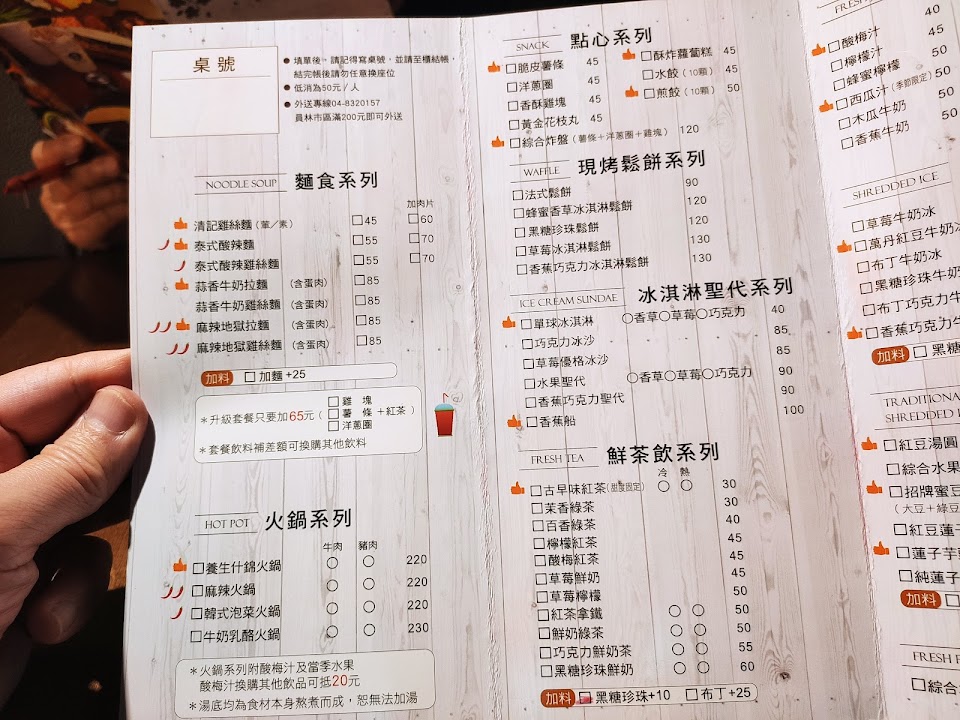 桌號
● 填單後，請記得寫桌號，並請至櫃結帳，
結完帳後請勿任意換座位
● 低消為50元 / 人
● 外送專線04-8320157
員林市區滿200元即可外送
NOODLE SOUP 麵食系列
加肉片
清記雞絲麵（葷／素） □45 □60
泰式酸辣麵 □55 □70
泰式酸辣雞絲麵 □55 □70
蒜香牛奶拉麵 （含蛋肉） □85
蒜香牛奶雞絲麵 （含蛋肉） □85
麻辣地獄拉麵 （含蛋肉） □85
麻辣地獄雞絲麵 （含蛋肉） □85
加料 □加麵+25
＊升級套餐只要加65元（ □雞 塊 □薯 條 □洋蔥圈 ＋紅茶 ）
＊套餐飲料補差額可換購其他飲料
HOT POT 火鍋系列
牛肉 豬肉
□養生什錦火鍋 ○ ○ 220
□麻辣火鍋 ○ ○ 220
□韓式泡菜火鍋 ○ ○ 220
□牛奶乳酪火鍋 ○ ○ 230
＊火鍋系列附酸梅汁及當季水果
酸梅汁換購其他飲品可抵20元
＊湯底均為食材本身熬煮而成，恕無法加湯
SNACK 點心系列
□脆皮薯條 45
□洋蔥圈 45
□香酥雞塊 45
□黃金花枝丸 45
□綜合炸盤（薯條＋洋蔥圈＋雞塊） 120
□酥炸蘿蔔糕 45
□水餃（10顆） 45
□煎餃（10顆） 50
WAFFLE 現烤鬆餅系列
□法式鬆餅 90
□蜂蜜香草冰淇淋鬆餅 120
□黑糖珍珠鬆餅 120
□草莓冰淇淋鬆餅 130
□香蕉巧克力冰淇淋鬆餅 130
ICE CREAM SUNDAE 冰淇淋聖代系列
□單球冰淇淋 ○香草○草莓○巧克力 40
□巧克力冰沙 85
□草莓優格冰沙 85
□水果聖代 ○香草○草莓○巧克力 90
□香蕉巧克力聖代 90
□香蕉船 100
FRESH TEA 鮮茶飲系列
冷 熱
□古早味紅茶（甜度固定） ○ ○ 30
□茉香綠茶 30
□百香綠茶 40
□檸檬紅茶 45
□酸梅紅茶 45
□草莓鮮奶 45
□草莓檸檬 50
□紅茶拿鐵 ○ ○ 50
□鮮奶綠茶 ○ ○ 50
□巧克力鮮奶茶 ○ ○ 55
□黑糖珍珠鮮奶 ○ ○ 60
加料 □黑糖珍珠+10 □布丁+25
□酸梅汁 40
□檸檬汁 45
□蜂蜜檸檬 50
□西瓜汁（季節限定） 50
□木瓜牛奶 50
□香蕉牛奶 50
SHREDDED ICE
□草莓牛奶冰
□萬丹紅豆牛奶冰
□布丁牛奶冰
□黑糖珍珠牛奶
□布丁巧克力牛
□香蕉巧克力牛
加料 □黑糖
TRADITIONA
SHREDDED I
□紅豆湯圓
□綜合水果
□招牌蜜豆
（大豆＋綠豆
□紅豆蓮子
□蓮子芋
□純蓮子
加料
FRESH F
□綜合